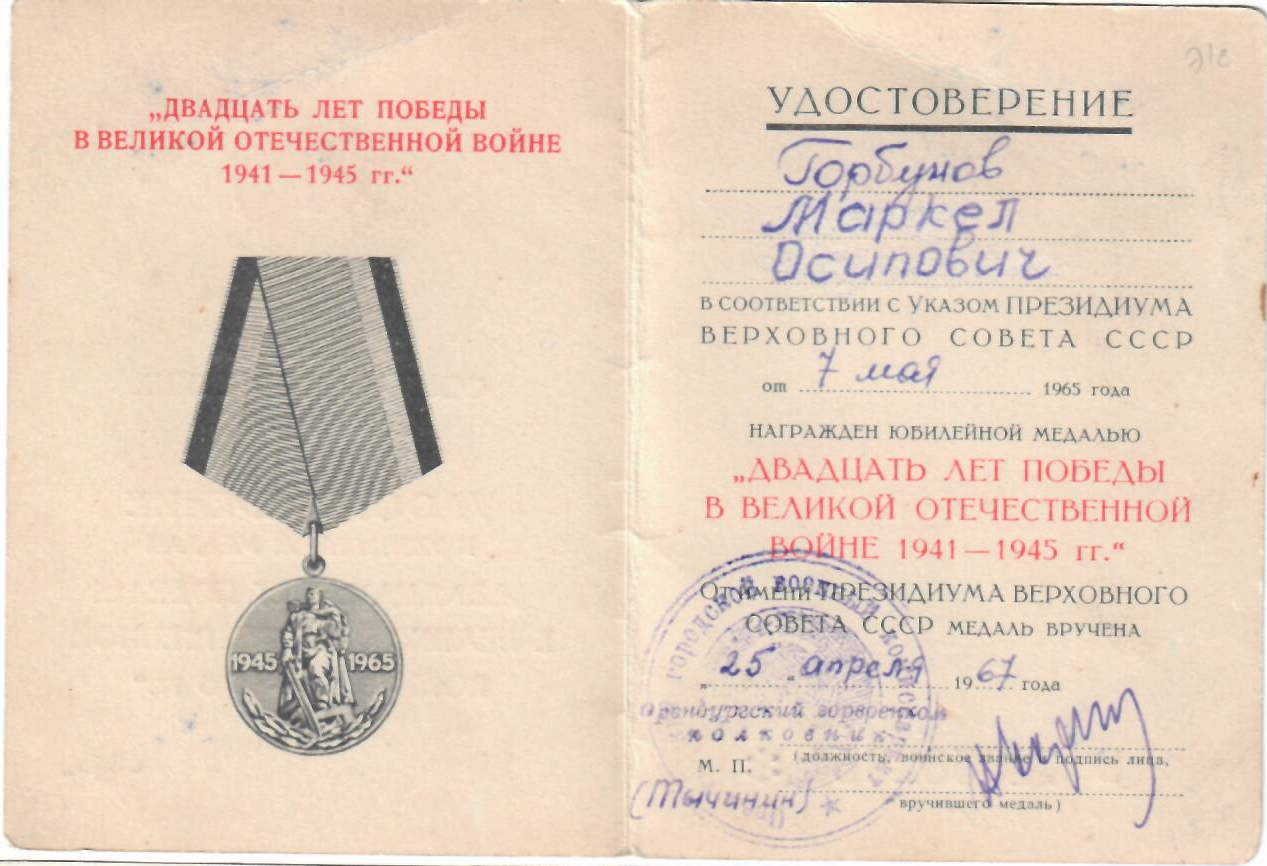 „ДВАДЦАТЬ ЛЕТ ПОБЕДЫ
В ВЕЛИКОЙ ОТЕЧЕСТВЕННОЙ ВОЙНЕ
1941 — 1945 гг.“
1945 1965
УДОСТОВЕРЕНИЕ
Горбунов
Маркел
Осипович
В СООТВЕТСТВИИ С УКАЗОМ ПРЕЗИДИУМА
ВЕРХОВНОГО СОВЕТА СССР
от 7 мая 1965 года
НАГРАЖДЕН ЮБИЛЕЙНОЙ МЕДАЛЬЮ
„ДВАДЦАТЬ ЛЕТ ПОБЕДЫ
В ВЕЛИКОЙ ОТЕЧЕСТВЕННОЙ
ВОЙНЕ 1941 — 1945 гг.“
От имени ПРЕЗИДИУМА ВЕРХОВНОГО
СОВЕТА СССР МЕДАЛЬ ВРУЧЕНА
„25“ апреля 1967 года
Оренбургский горвоенком
полковник
(должность, воинское звание и подпись лица,
М. П.
(Тычинин)
вручившего медаль)
городской военный комиссариат